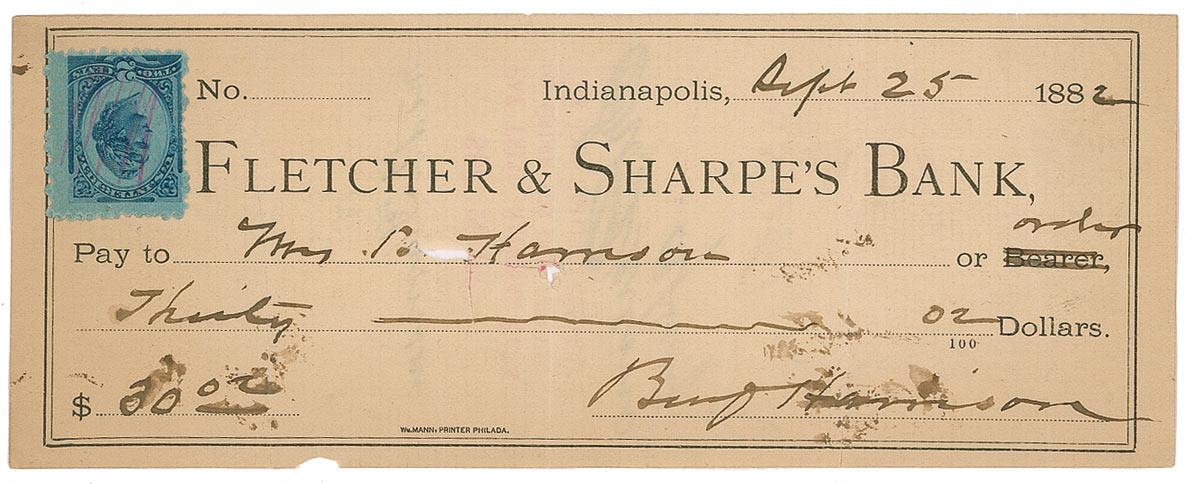 No. Indianapolis, Sept 25 1882
FLETCHER & SHARPE'S BANK,
order
Pay to Mrs B. Harrison or Bearer,
Thirty 02 Dollars.
100
$ 30 02 Benj Harrison
WM. MANN, PRINTER PHILADA.